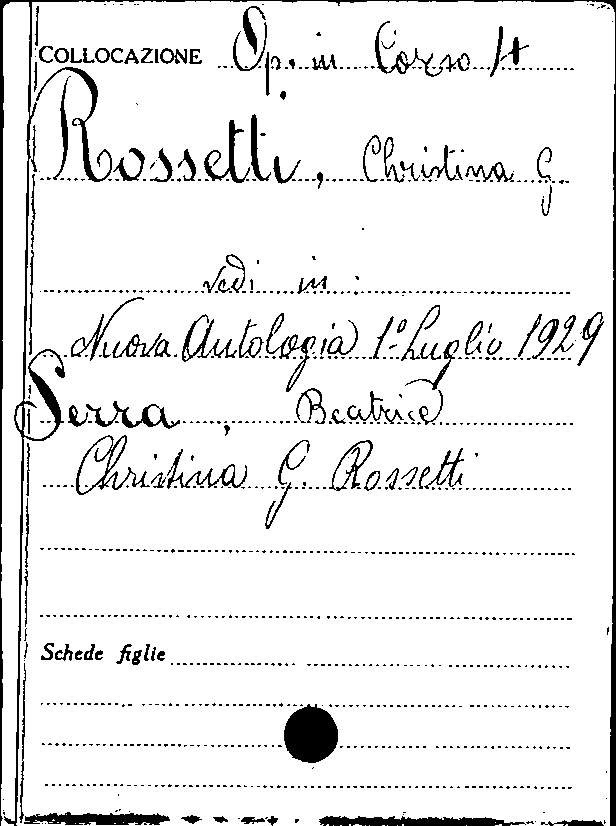 COLLOCAZIONE Op. in Corso 14
Rossetti, Christina G.
vedi in :
Nuova Antologia 1º Luglio 1929
Serra, Beatrice
Christina G. Rossetti
Schede figlie